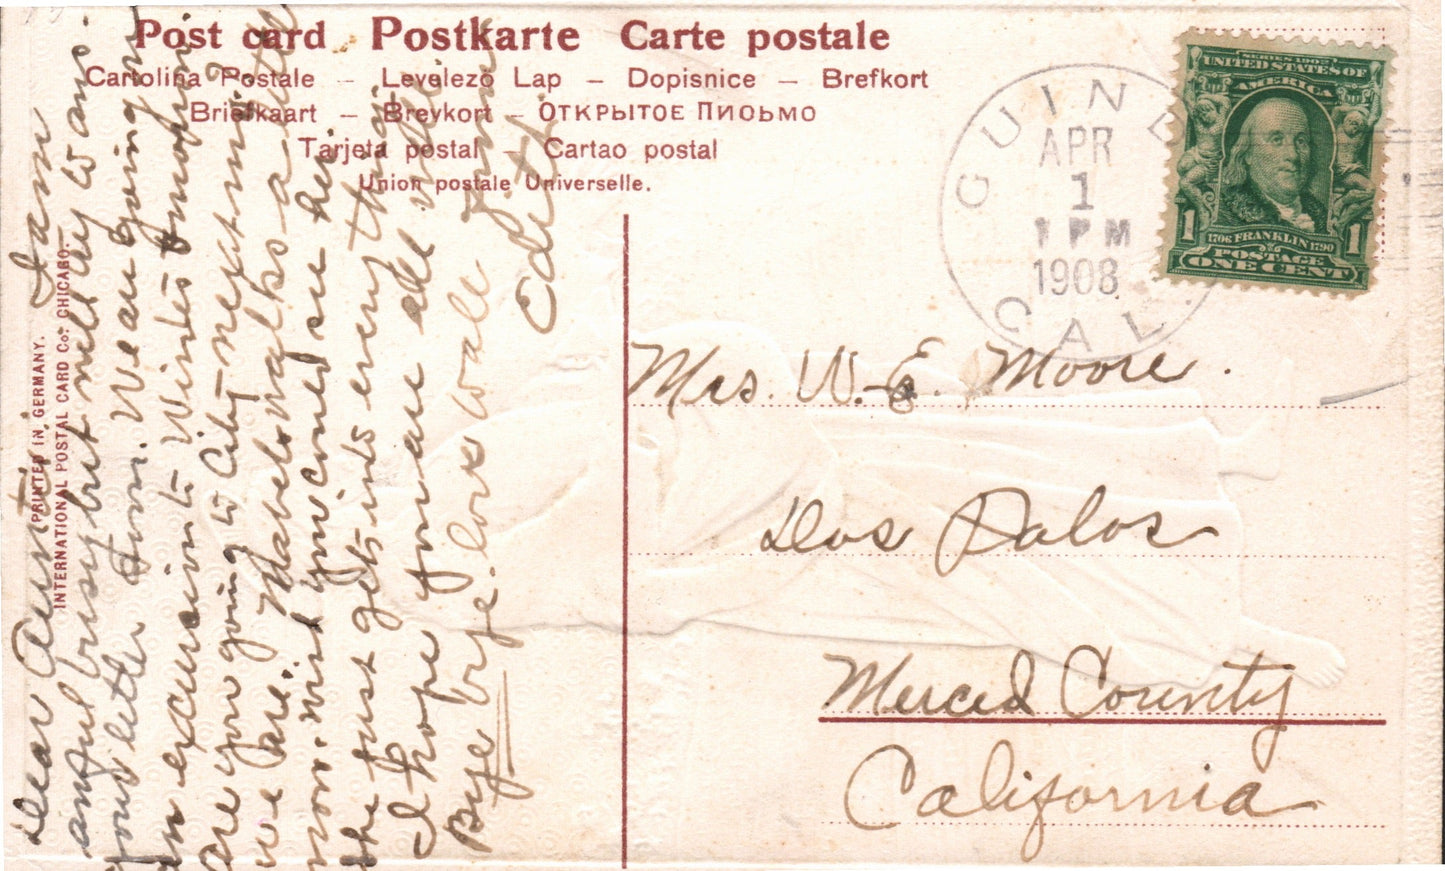 Post card Postkarte Carte postale
Cartolina Postale – Levelező Lap – Dopisnice – Brefkort
Briefkaart – Brevkort – ОТКРЫТОЕ ПИСЬМО
Tarjeta postal – Cartao postal
Union postale Universelle.
GUINDA
APR
1
1 PM
1908
CAL.
SERIES 1902
UNITED STATES OF
AMERICA
1 1
1706 FRANKLIN 1790
POSTAGE
ONE CENT
Mrs. W. E. Moore.
Dos Palos
Merced County
California
PRINTED IN GERMANY.
INTERNATIONAL POSTAL CARD Co. CHICAGO.
Dear Aunti. I am
awful busy but will try to ans.
your letter soon. We are going on
an excursion to Winters tomorrow
Are you going to City next mo.?
we are. Mabel walks a little
now. wish you could see her
she just gets into everything
I hope you are all well
Bye bye. love to all from
Edith